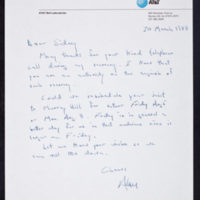 AT&T
AT&T Bell Laboratories
20 March 1988
Dear Sidney
Many thanks for your kind telephone
call during my recovery. I hear that
you are an authority on the aspects of
back surgery.
Could we reschedule your visit
to Murray Hill for either Friday
or Mon May 9. Friday is in general a
better day for us in that audience size is
larger on Friday.
Let me know your wishes so we
can set the date.
Cheers